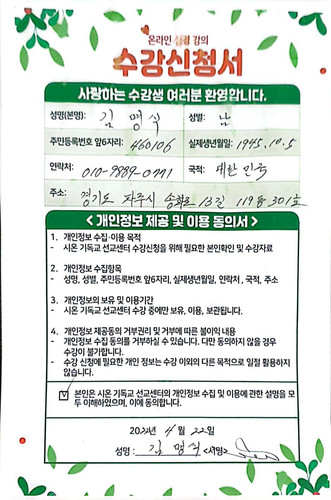 온라인 성경 강의
수강신청서
사랑하는 수강생 여러분 환영합니다.
성명(본명): 김 명식 성별: 남
주민등록번호 앞6자리: 460106 실제생년월일: 1945.10.5
연락처: 010-9989-0771 국적: 대한민국
주소: 경기도 파주시 송화로 13길 119동 301호
< 개인정보 제공 및 이용 동의서 >
1. 개인정보 수집·이용 목적
- 시온 기독교 선교센터 수강신청을 위해 필요한 본인확인 및 수강자료
2. 개인정보 수집항목
- 성명, 성별, 주민등록번호 앞6자리, 실제생년월일, 연락처, 국적, 주소
3. 개인정보의 보유 및 이용기간
- 시온 기독교 선교센터 수강 중에만 보유, 이용, 보관됩니다.
4. 개인정보 제공동의 거부권리 및 거부에 따른 불이익 내용
- 개인정보 수집 동의를 거부하실 수 있습니다. 다만 동의하지 않을 경우
수강이 불가합니다.
- 수강 신청에 필요한 개인 정보는 수강 이외의 다른 목적으로 일절 활용하지
않습니다.
본인은 시온 기독교 선교센터의 개인정보 수집 및 이용에 관한 설명을 모
두 이해하였으며, 이에 동의합니다.
2024년 4월 22일
성명 : 김 명식 <서명>